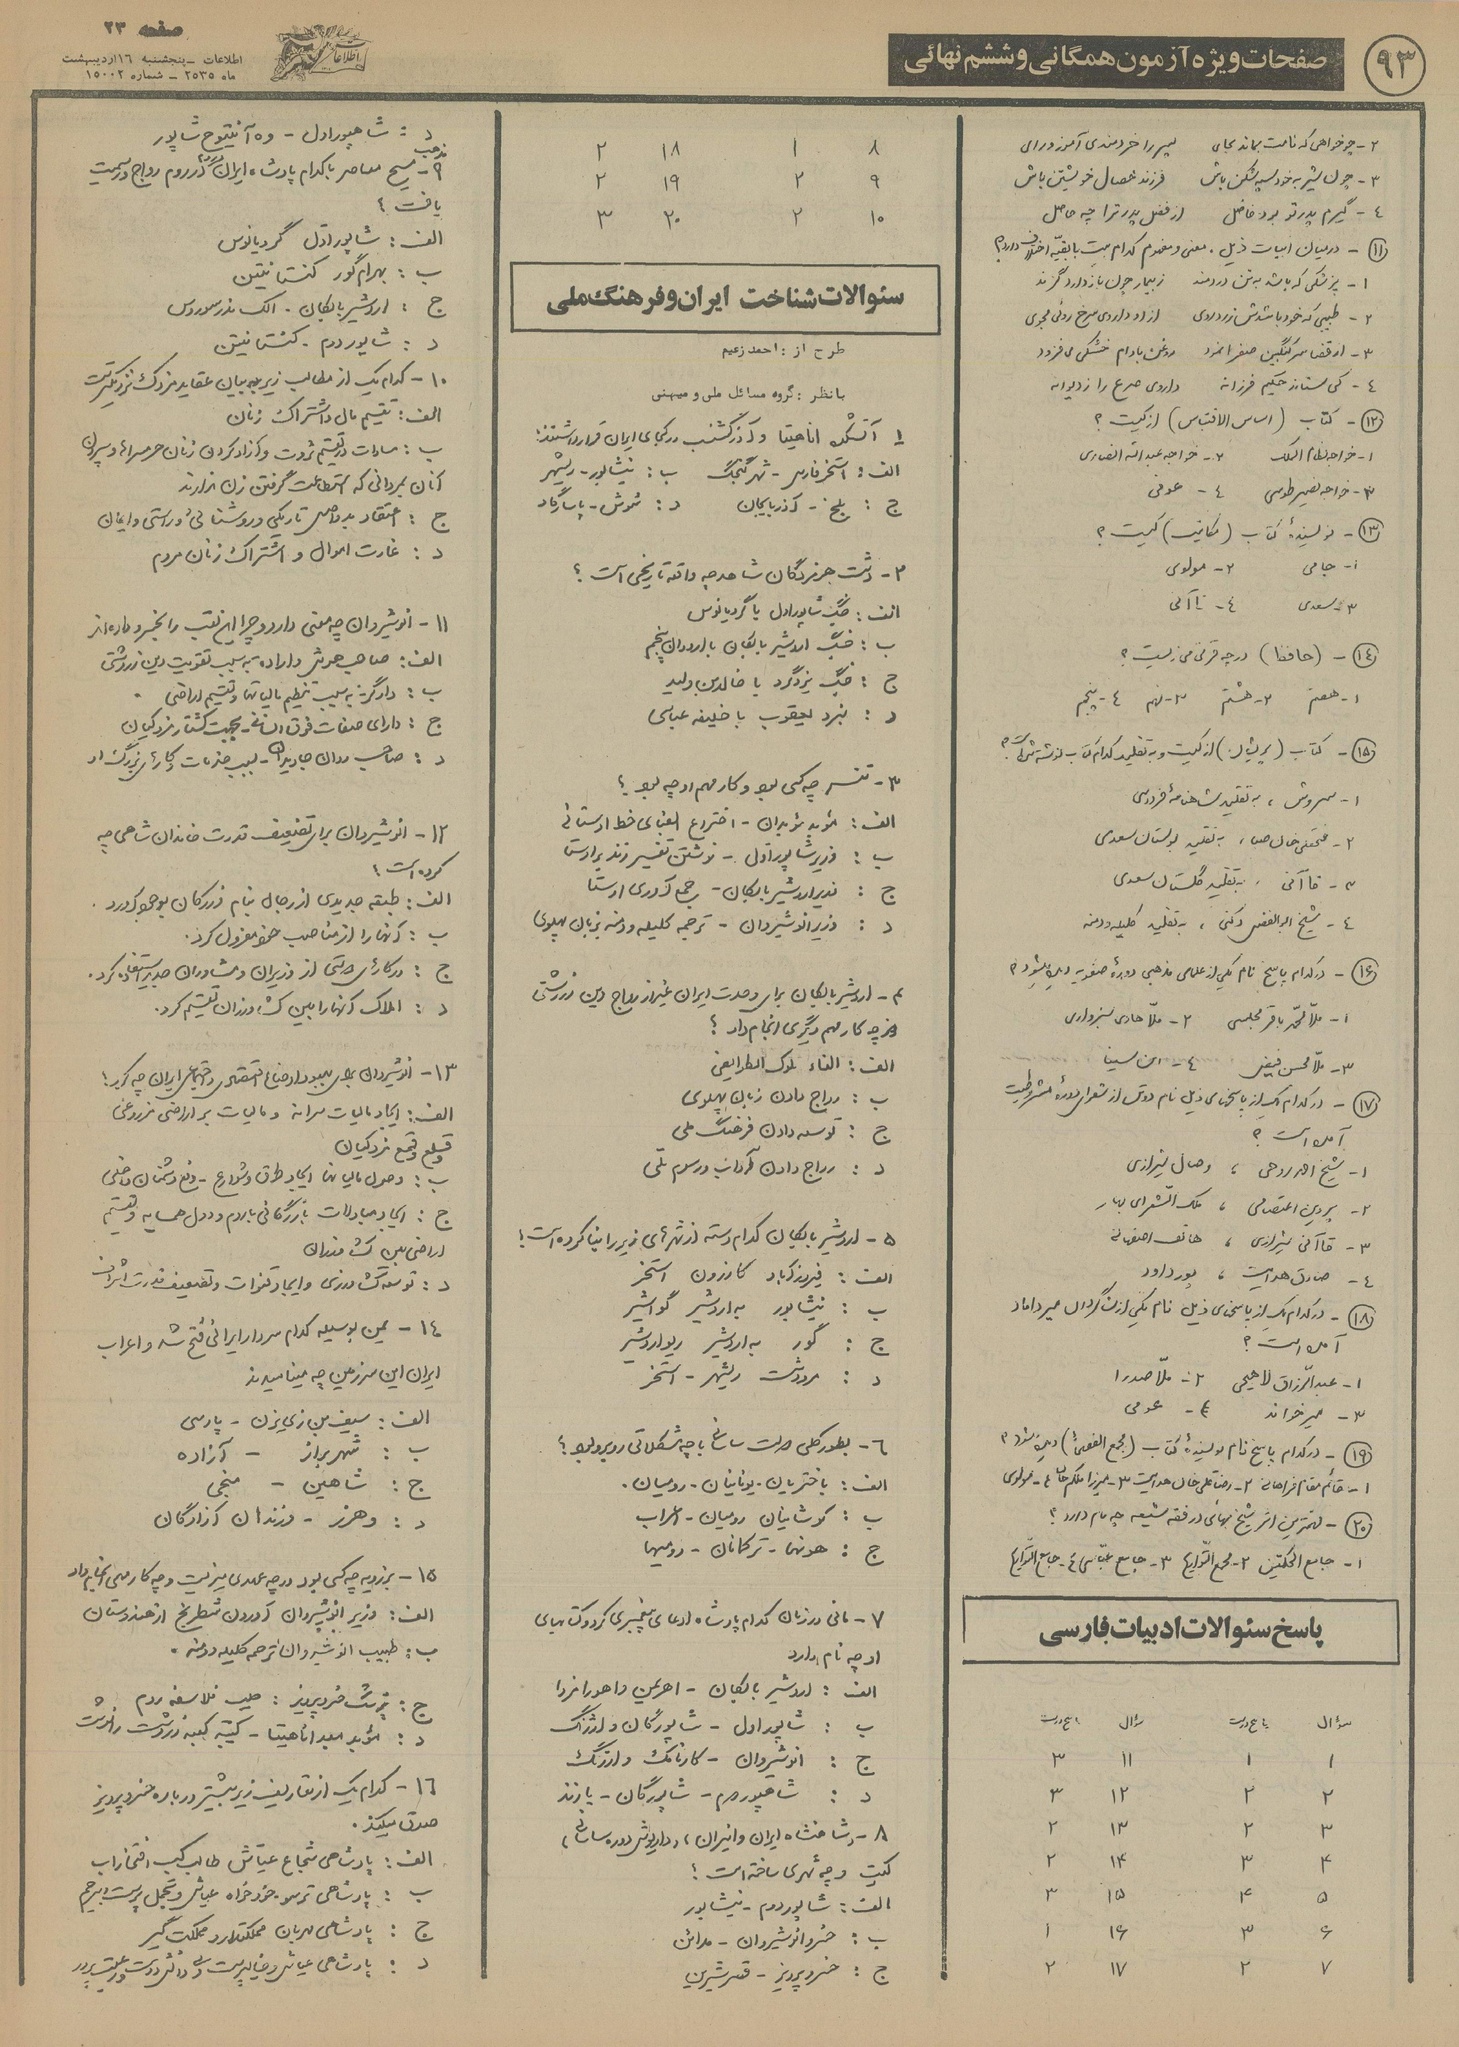 ۹۳
صفحات ویژه آزمون همگانی و ششم نهائی
اطلاعات
صفحه ۲۳
اطلاعات - پنجشنبه ۱۶ اردیبهشت
ماه ۲۵۳۵ - شماره ۱۵۰۰۲
۲- چو خواهی که نامت بماند بجای پسر را خردمندی آموز و رای
۳- چون شیر به خود سپه شکن باش فرزند خصال خویشتن باش
۴- گیرم پدر تو بود فاضل از فضل پدر ترا چه حاصل
۱۱- در میان ابیات ذیل، معنی و مفهوم کدام بیت با بقیه اختلاف دارد؟
۱- پزشکی که باشد به تن دردمند ز بیمار چون باز دارد گزند
۲- طبیبی که خود باشدش زرد روی از او داروی سرخ روئی مجوی
۳- از قضا سرکنگبین صفرا فزود روغن بادام خشکی می فزود
۴- کی ستاند حکیم فرزانه داروی صرع را ز دیوانه
۱۲- کتاب (اساس الاقتباس) از کیست؟
۱- خواجه نظام الملک ۲- خواجه عبدالله انصاری
۳- خواجه نصیر طوسی ۴- عوفی
۱۳- نویسندهٔ کتاب (مکاتیب) کیست؟
۱- جامی ۲- مولوی
۳- سعدی ۴- قاآنی
۱۴- (حافظ) در چه قرنی می زیست؟
۱- هفتم ۲- هشتم ۳- نهم ۴- پنجم
۱۵- کتاب (پریشان) از کیست و به تقلید کدام کتاب نوشته شده است؟
۱- سروش، به تقلید شاهنامهٔ فردوسی
۲- فتحعلی خان صبا، به تقلید بوستان سعدی
۳- قاآنی، به تقلید گلستان سعدی
۴- شیخ ابوالفضل دکنی، به تقلید کلیله و دمنه
۱۶- در کدام پاسخ نام یکی از علمای مذهبی دورهٔ صفویه دیده میشود؟
۱- ملا محمد باقر مجلسی ۲- ملا هادی سبزواری
۳- ملا محسن فیض ۴- ابن سینا
۱۷- در کدام یک از پاسخهای ذیل نام دو تن از شعرای دورهٔ مشروطیت
آمده است؟
۱- شیخ احمد روحی، وصال شیرازی
۲- پروین اعتصامی، ملک الشعرای بهار
۳- قاآنی شیرازی، هاتف اصفهانی
۴- صادق هدایت، پورداود
۱۸- در کدام یک از پاسخهای ذیل نام یکی از شاگردان میرداماد
آمده است؟
۱- عبدالرزاق لاهیجی ۲- ملا صدرا
۳- میرخواند ۴- عوفی
۱۹- در کدام پاسخ نام نویسندهٔ کتاب (مجمع الفصحا) دیده میشود؟
۱- قائم مقام فراهانی ۲- رضا قلی خان هدایت ۳- میرزا ملکم خان ۴- مولوی
۲۰- مهمترین اثر شیخ بهائی در فقه شیعه چه نام دارد؟
۱- جامع الحکمتین ۲- مجمع التواریخ ۳- جامع عباسی ۴- جامع التواریخ
پاسخ سئوالات ادبیات فارسی
سؤال پاسخ درست سؤال پاسخ درست
۱ ۱ ۱۱ ۳
۲ ۲ ۱۲ ۳
۳ ۲ ۱۳ ۲
۴ ۳ ۱۴ ۲
۵ ۴ ۱۵ ۳
۶ ۳ ۱۶ ۱
۷ ۲ ۱۷ ۲
۸ ۱ ۱۸ ۲
۹ ۲ ۱۹ ۲
۱۰ ۲ ۲۰ ۳
سئوالات شناخت ایران و فرهنگ ملی
طرح از: احمد زعیم
با نظر: گروه مسائل ملی و میهنی
۱- آتشکده اناهیتا و آذرگشنسب در کجای ایران قرار داشتند؟
الف: استخر فارس - شهر گنجک ب: نیشابور - ریشهر
ج: بلخ - آذربایجان د: شوش - پاسارگاد
۲- دشت هرمزدگان شاهد چه واقعه تاریخی است؟
الف: جنگ شاپور اول با گردیانوس
ب: جنگ اردشیر بابکان با اردوان پنجم
ج: جنگ یزدگرد با خالد بن ولید
د: نبرد یعقوب با خلیفه عباسی
۳- تنسر چه کسی بود و کار مهم او چه بود؟
الف: مؤبد مؤبدان - اختراع الفبای خط اوستائی
ب: وزیر شاپور اول - نوشتن تفسیر زند بر اوستا
ج: وزیر اردشیر بابکان - جمع آوری اوستا
د: وزیر انوشیروان - ترجمه کلیله و دمنه بزبان پهلوی
۴- اردشیر بابکان برای وحدت ایران غیر از رواج دین زردشتی
چه کار مهم دیگری انجام داد؟
الف: الغاء ملوک الطوایفی
ب: رواج دادن زبان پهلوی
ج: توسعه دادن فرهنگ ملی
د: رواج دادن آداب و رسوم ملی
۵- اردشیر بابکان کدام دسته از شهرهای زیر را بنا کرده است؟
الف: فیروزآباد کازرون استخر
ب: نیشابور به اردشیر گواشیر
ج: گور به اردشیر ریواردشیر
د: مرودشت ریشهر - استخر
۶- بطور کلی دولت ساسانی با چه مشکلاتی روبرو بود؟
الف: باختریان - یونانیان - رومیان.
ب: کوشانیان رومیان - اعراب
ج: هونها - ترکانان - رومیها
۷- مانی در زمان کدام پادشاه ادعای پیغمبری کرد و کتابهای
او چه نام دارد
الف: اردشیر بابکان - اهریمن و اهورامزدا
ب: شاپور اول - شاپورگان و ارژنگ
ج: انوشیروان - کارنامک و ارژنگ
د: شاهپور دوم - شاپورگان - پازند
۸- «شاهنشاه ایران و انیران»، «داریوش دوره ساسانی»
کیست و چه شهری ساخته است؟
الف: شاپور دوم - نیشابور
ب: خسرو انوشیروان - مدائن
ج: خسرو پرویز - قصر شیرین
د: شاهپور اول - وه آنتیوخ شاپور
۹- مذهب مسیح معاصر با کدام پادشاه ایران در روم رواج و رسمیت
یافت؟
الف: شاپور اول گردیانوس
ب: بهرام گور کنستانتین
ج: اردشیر بابکان - الکساندر سوروس
د: شاپور دوم - کنستانتین
۱۰- کدام یک از مطالب زیر به بیان عقاید مزدک نزدیکتر است
الف: تقسیم مال و اشتراک زنان
ب: مساوات در تقسیم ثروت و آزاد کردن زنان حرمسراها و سپردن
آنان بمردانی که استطاعت گرفتن زن ندارند
ج: اعتقاد به دو اصل تاریکی و روشنائی و راستی و ایمان
د: غارت اموال و اشتراک زنان مردم
۱۱- انوشیروان چه معنی دارد و چرا این لقب را بخسرو داده اند
الف: صاحب هوش و اراده - به سبب تقویت دین زردشتی
ب: دادگر - به سبب تنظیم مالیاتها و تقسیم اراضی.
ج: دارای صفات فوق انسانی - بجهت کشتار مزدکیان
د: صاحب روان جاویدان - بسبب خدمات و کارهای بزرگ او
۱۲- انوشیروان برای تضعیف قدرت خاندان شاهی چه
کرده است؟
الف: طبقه جدیدی از رجال بنام بزرگان بوجود آورد.
ب: آنها را از مناصب خود معزول کرد.
ج: در کارهای دولتی از وزیران و مشاوران جدید استفاده کرد.
د: املاک آنها را بین کشاورزان تقسیم کرد.
۱۳- انوشیروان برای بهبود اوضاع اقتصادی و اجتماعی ایران چه کرد؟
الف: ایجاد مالیات سرانه و مالیات بر اراضی مزروعی
و قلع و قمع مزدکیان
ب: وصول مالیاتها ایجاد طرق و شوارع - دفع دشمنان داخلی
ج: ایجاد مبادلات بازرگانی با روم و دول همسایه و تقسیم
اراضی بین کشاورزان
د: توسعه کشاورزی و ایجاد قنوات و تضعیف قدرت اشراف
۱۴- یمن بوسیله کدام سردار ایرانی فتح شد و اعراب
ایران این سرزمین چه مینامیدند
الف: سیف بن ذی یزن - پارسی
ب: شهربراز - آزاده
ج: شاهین - منجی
د: وهرز - فرزندان آزادگان
۱۵- برزویه چه کسی بود در چه عهدی میزیست و چه کار مهمی انجام داد
الف: وزیر انوشیروان آوردن شطرنج از هندوستان
ب: طبیب انوشیروان ترجمه کلیله و دمنه.
ج: پزشک خسرو پرویز: جلب فلاسفه روم
د: مؤبد معبد اناهیتا - کتیبه کعبه زردشت را نوشت
۱۶- کدام یک از تعاریف زیر بیشتر درباره خسرو پرویز
صدق میکند.
الف: پادشاهی شجاع عیاش طالب کسب افتخارات
ب: پادشاهی ترسو - خودخواه عیاش و تجمل پرست و بیرحم
ج: پادشاهی مهربان مملکتدار و مملکت گیر
د: پادشاهی عیاش و خیالپرست ولی دانش دوست و رعیت پرور